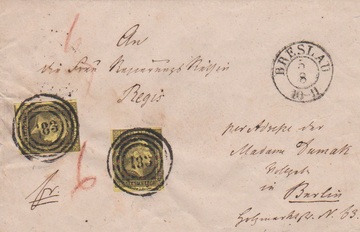 An
die Frau Regierungs Räthin
Regis
BRESLAU
5
8
10-11
183
183
per Adresse der
Madame Dumak
in
Berlin
Holzmarktstr. N. 63.
fr.